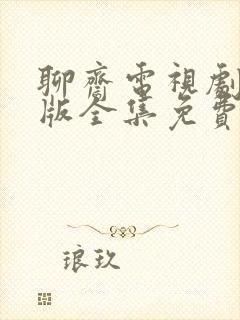 聊齋電視劇
版全集免費
琅玖